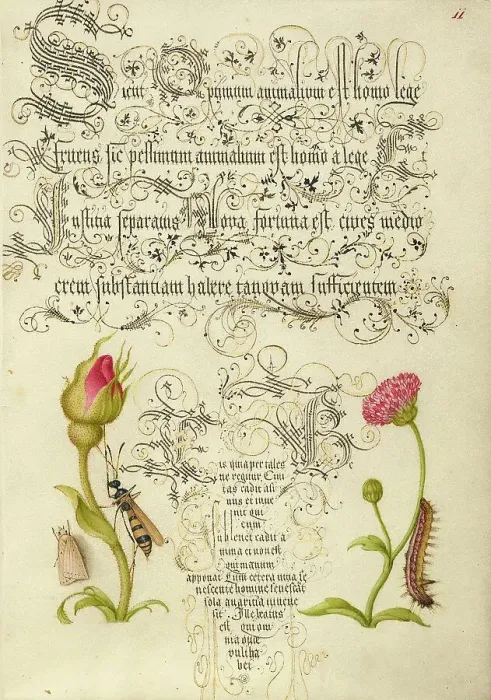 Sicut Optimum animalium est homo lege
fruens, sic pessimum animalium est homo a lege Et
Iustitia separatus Nova fortuna est, cives medio
crem substantiam habere tanquam sufficientem
ii
is quia per tales
Cadit asi
nus et inue
nit qui
eum
Subleuet cadit a
nima et non est
qui manum
apponat Cum cetera uitia se
nescente homine senescat
sola auaritia iuuene
scit. Ille beatus
est qui om
nia que
vult ha
bet.